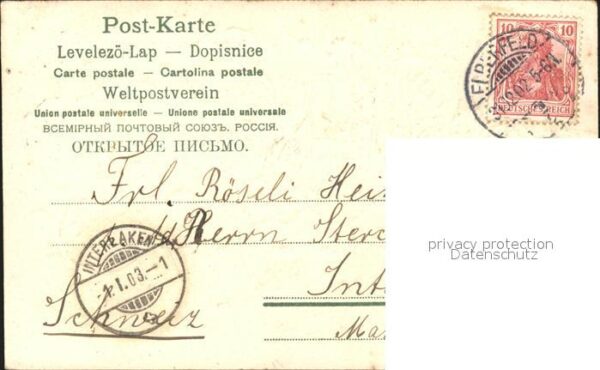 Post-Karte
Levelezö-Lap — Dopisnice
Carte postale — Cartolina postale
Weltpostverein
Union postale universelle — Unione postale universale
ВСЕМІРНЫЙ ПОЧТОВЫЙ СОЮЗЪ. РОССІЯ.
ОТКРЫТОЕ ПИСЬМО.
10 10
ELBERFELD
DEUTSCHES REICH
Frl. Röseli Hei
Herrn Ster
INTERLAKEN
1.I.03.–1
Int
Schweiz
Ma
privacy protection
Datenschutz